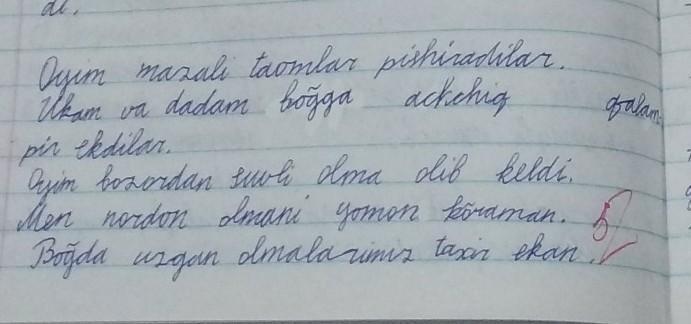 di.
Oyim mazali taomlar pishiradilar.
Ukam va dadam boğga achchiq qalam-
pir ekdilar.
Oyim bozordan suvli olma olib keldi.
Men nordon olmani yomon kõraman.
Boğda uzgan olmalarimiz taxir ekan.
5